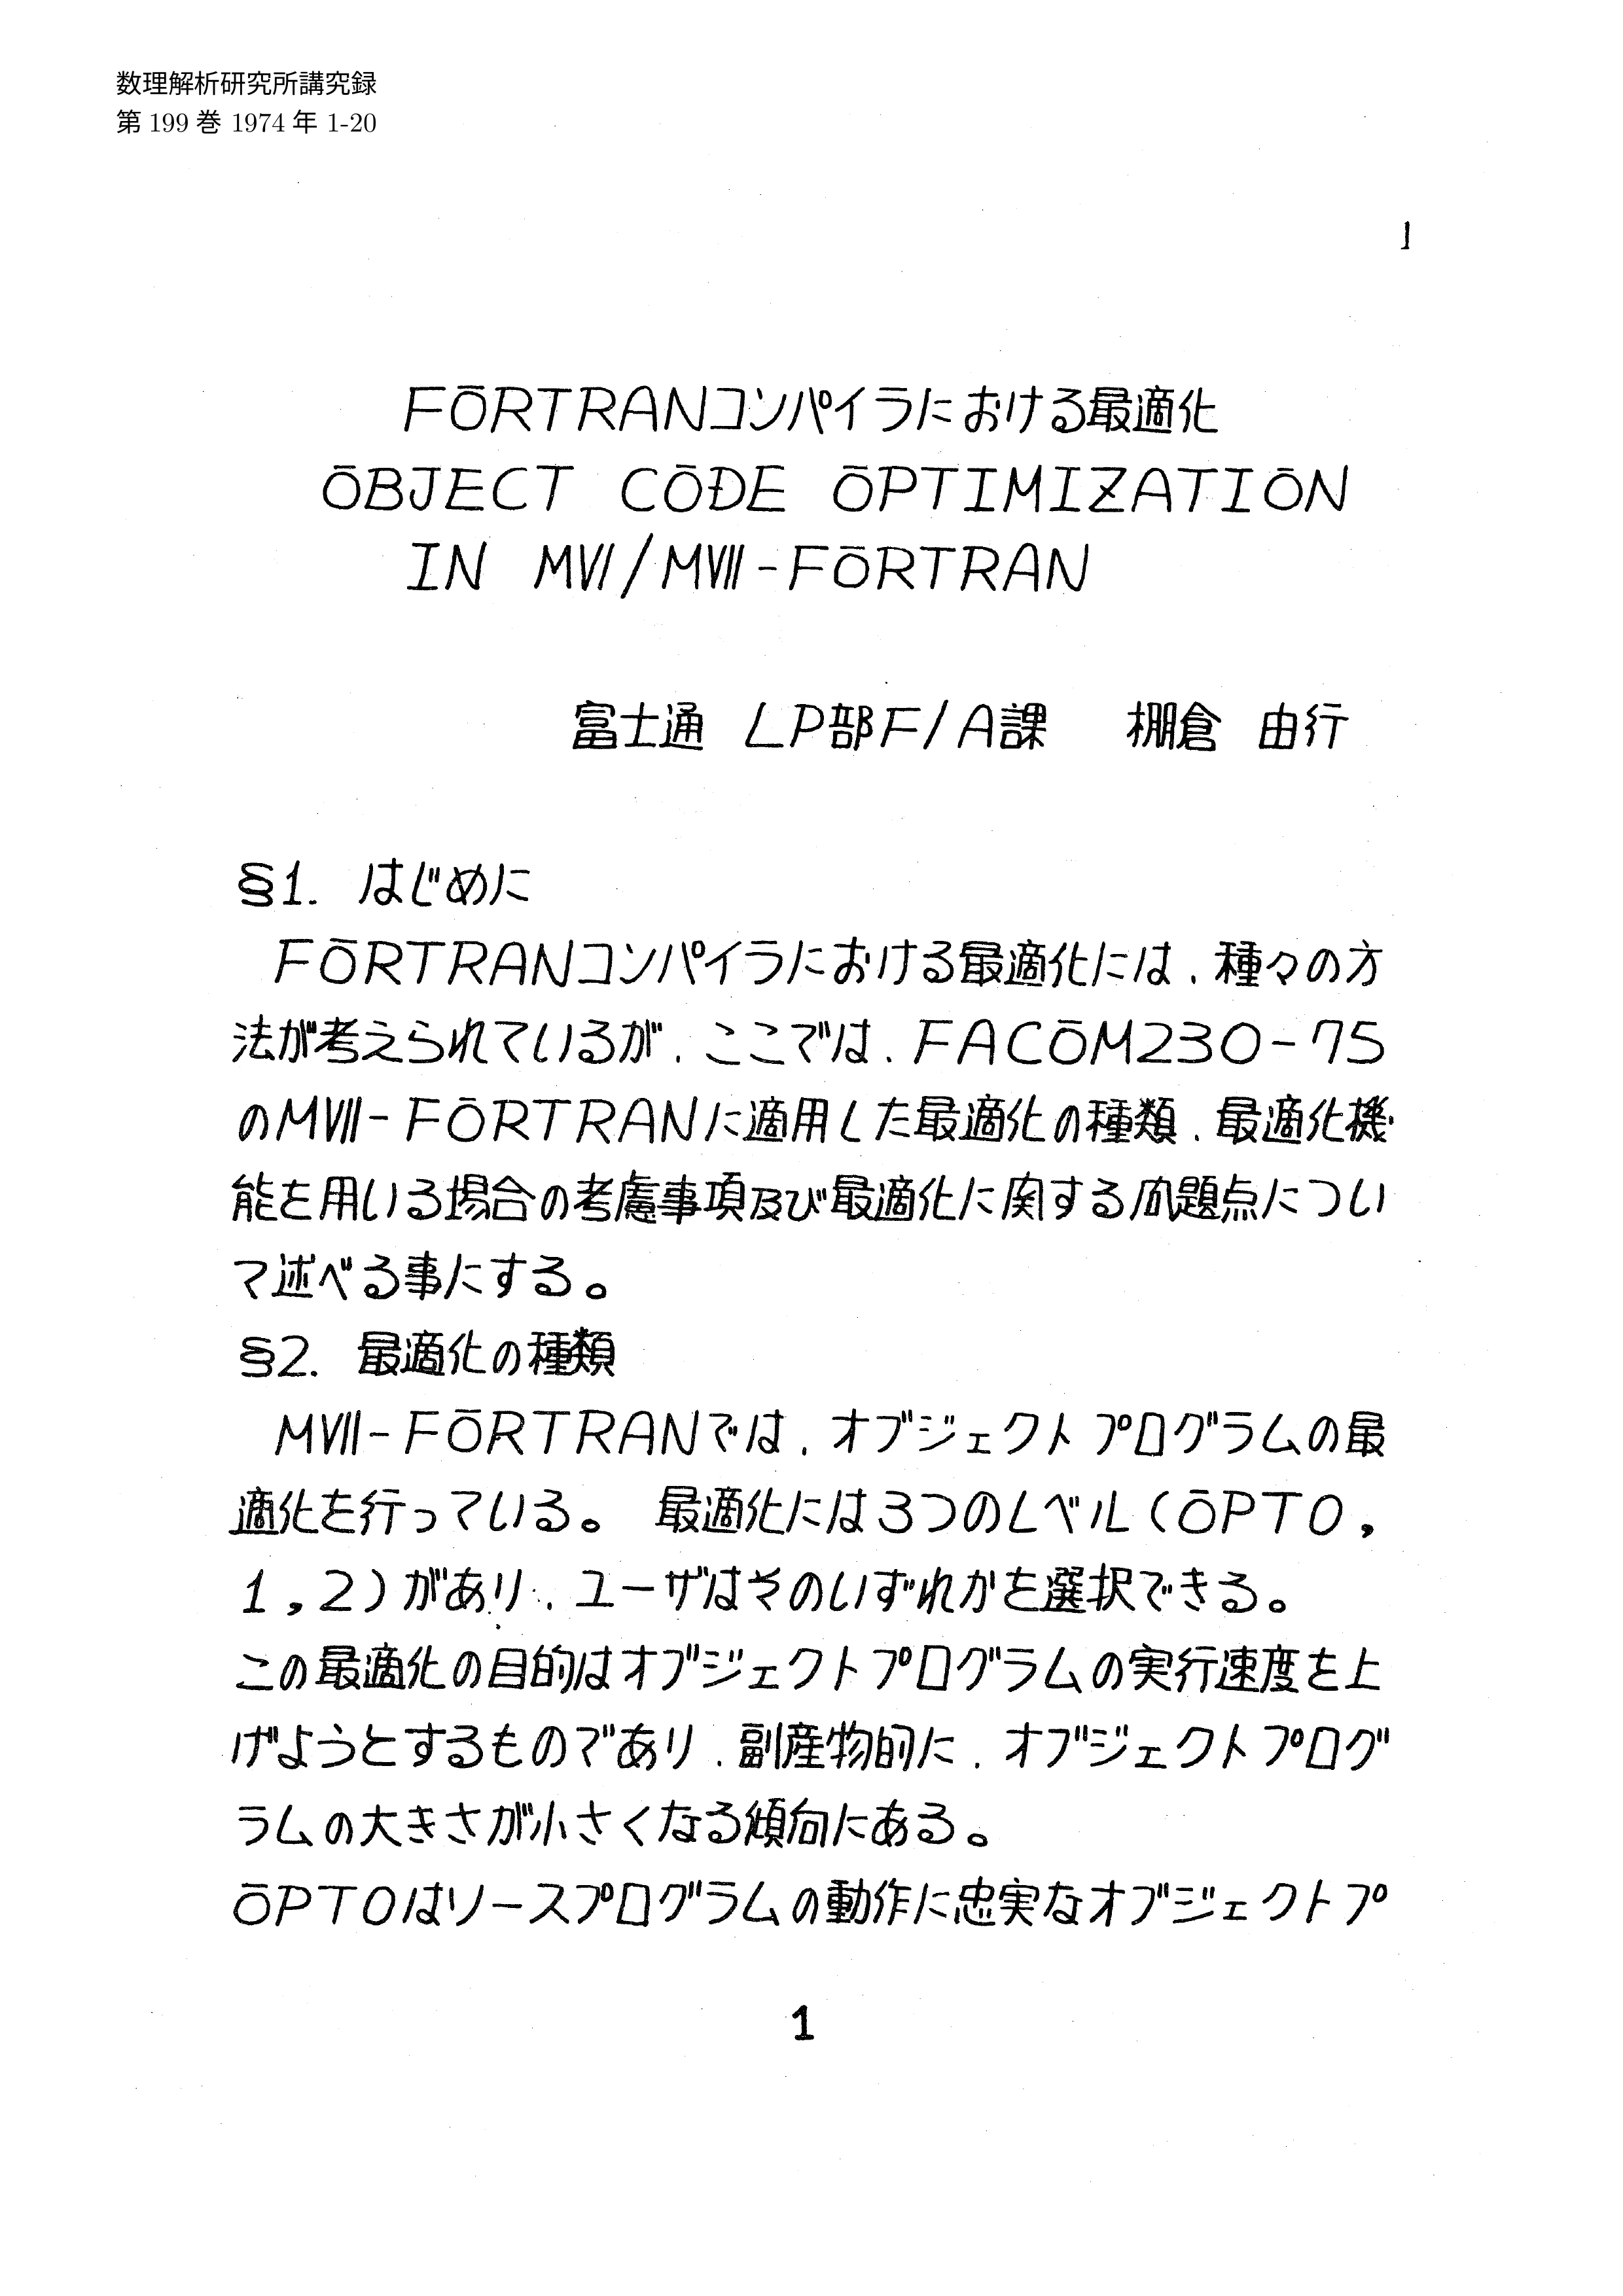 数理解析研究所講究録
第 199 巻 1974 年 1-20
1
FŌRTRANコンパイラにおける最適化
ŌBJECT CŌDE ŌPTIMIZATIŌN
IN MⅥ/MⅦ-FŌRTRAN
富士通 LP部F/A課 棚倉 由行
§1. はじめに
FŌRTRANコンパイラにおける最適化には、種々の方
法が考えられているが、ここでは、FACŌM230-75
のMⅦ-FŌRTRANに適用した最適化の種類、最適化機
能を用いる場合の考慮事項及び最適化に関する問題点につい
て述べる事にする。
§2. 最適化の種類
MⅦ-FŌRTRANでは、オブジェクトプログラムの最
適化を行っている。 最適化には3つのレベル(ŌPT0,
1,2)があり、ユーザはそのいずれかを選択できる。
この最適化の目的はオブジェクトプログラムの実行速度を上
げようとするものであり、副産物的に、オブジェクトプログ
ラムの大きさが小さくなる傾向にある。
ŌPT0はソースプログラムの動作に忠実なオブジェクトプ
1